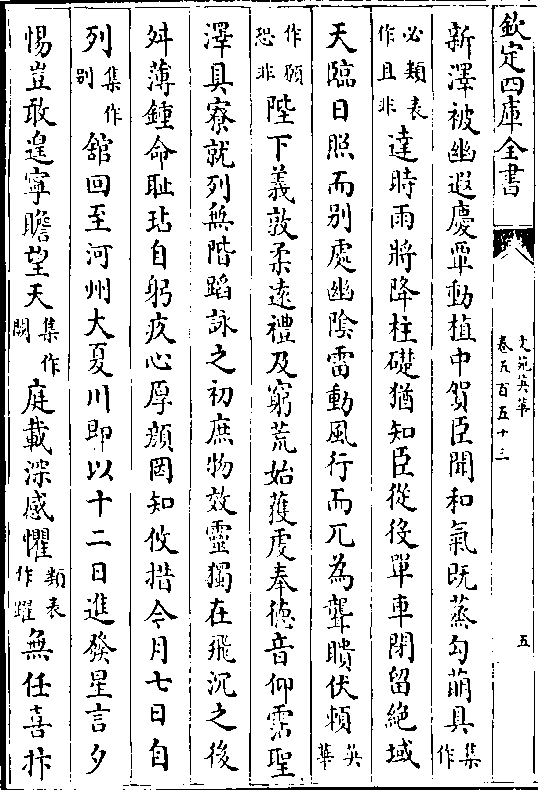 欽定四庫全書
文苑英華
卷五百五十三
五
新澤被幽遐慶覃動植中賀臣聞和氣既蒸勾萌具集作
必類表作且非達時雨將降柱礎猶知臣從後單車閉留絶域
天臨日照而别處幽陰雷動風行而兀為聾聵伏頼英華
作願恐非陛下義敦柔遠禮及窮荒始獲虔奉徳音仰霑聖
澤具寮就列無階蹈詠之初庶物效靈獨在飛沉之後
舛薄鍾命耻玷自躬疚心厚顔罔知攸措今月七日自
列集作别舘回至河州大夏川即以十二日進發星言夕
惕豈敢遑寧瞻望天集作闕庭載深感懼類表作躍無任喜抃